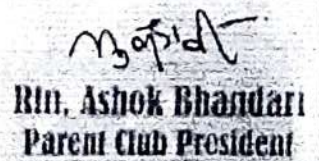 Rtn. Ashok Bhandari
Parent Club President